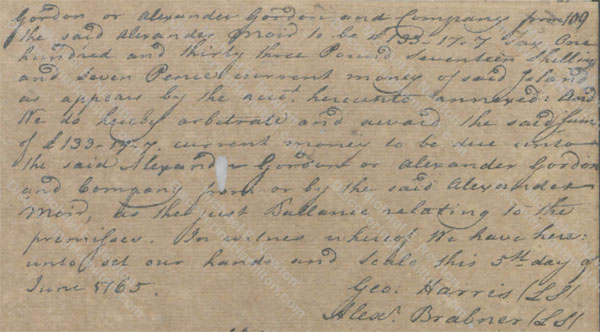 Gordon or Alexander Gordon and Company from 109
the said Alexander Moir to be £133-17-7 Say One
hundred and thirty three Pound Seventeen Shilling
and Seven Pence current money of said Island
as appears by the acct. hereunto annexed: And
We do hereby arbitrate and award the said Sum
of £133-17-7 current money to be due unto
the said Alexander Gordon or Alexander Gordon
and Company from or by the said Alexander
Moir, as the just Ballance relating to the
premises. In witness whereof We have here:
unto set our hands and Seals this 5th day of
June 1765.
Geo: Harris (LS)
Alexr. Brabner (LS)